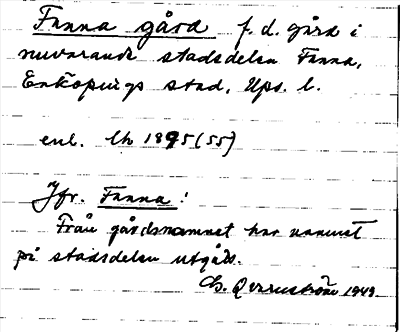 Fanna gård f. d. gård i
nuvarande stadsdelen Fanna,
Enköpings stad, Ups. l.
enl. Uh 1895 (55)
Jfr. Fanna!
Från gårdsnamnet har namnet
på stadsdelen utgått.
1949